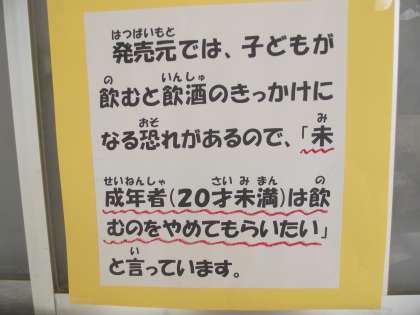 はつばいもと
発売元では、子どもが
の いんしゅ
飲むと飲酒のきっかけに
おそ み
なる恐れがあるので、「未
せいねんしゃ さい み まん の
成年者(20才未満)は飲
むのをやめてもらいたい」
い
と言っています。